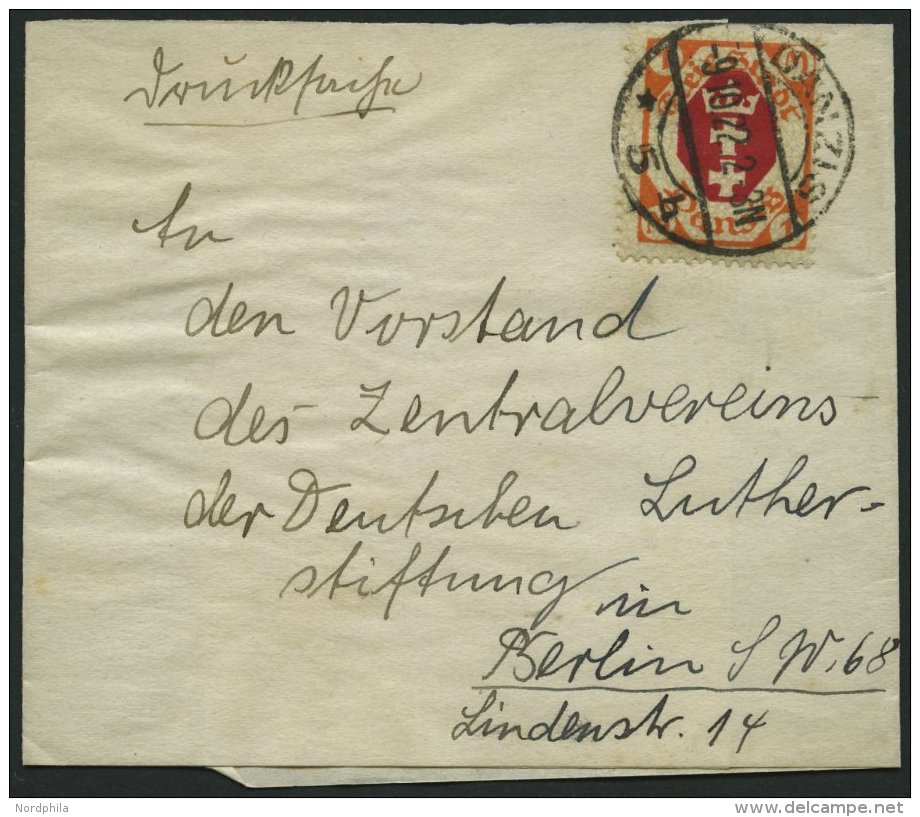 Drucksache
Freie Stadt
Danzig
DANZIG
-9.10.22.2-3N
* 5 b
An
den Vorstand
des Zentralvereins
der Deutschen Luther-
stiftung in
Berlin SW. 68
Lindenstr. 14
Nordphila
delcampe.net